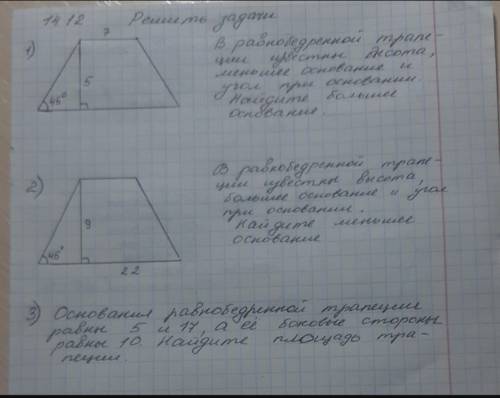 14.12 Решить задачи
1)
7
5
45°
В равнобедренной трапе-
ции известны высота,
меньшее основание и
угол при основании
Найдите большее
основание.
2)
9
45°
22
В равнобедренной трапе-
ции известны высота,
большее основание и угол
при основании.
Найдите меньшее
основание
3) Основания равнобедренной трапеции
равны 5 и 17, а её боковые стороны
равны 10. Найдите площадь тра-
пеции.